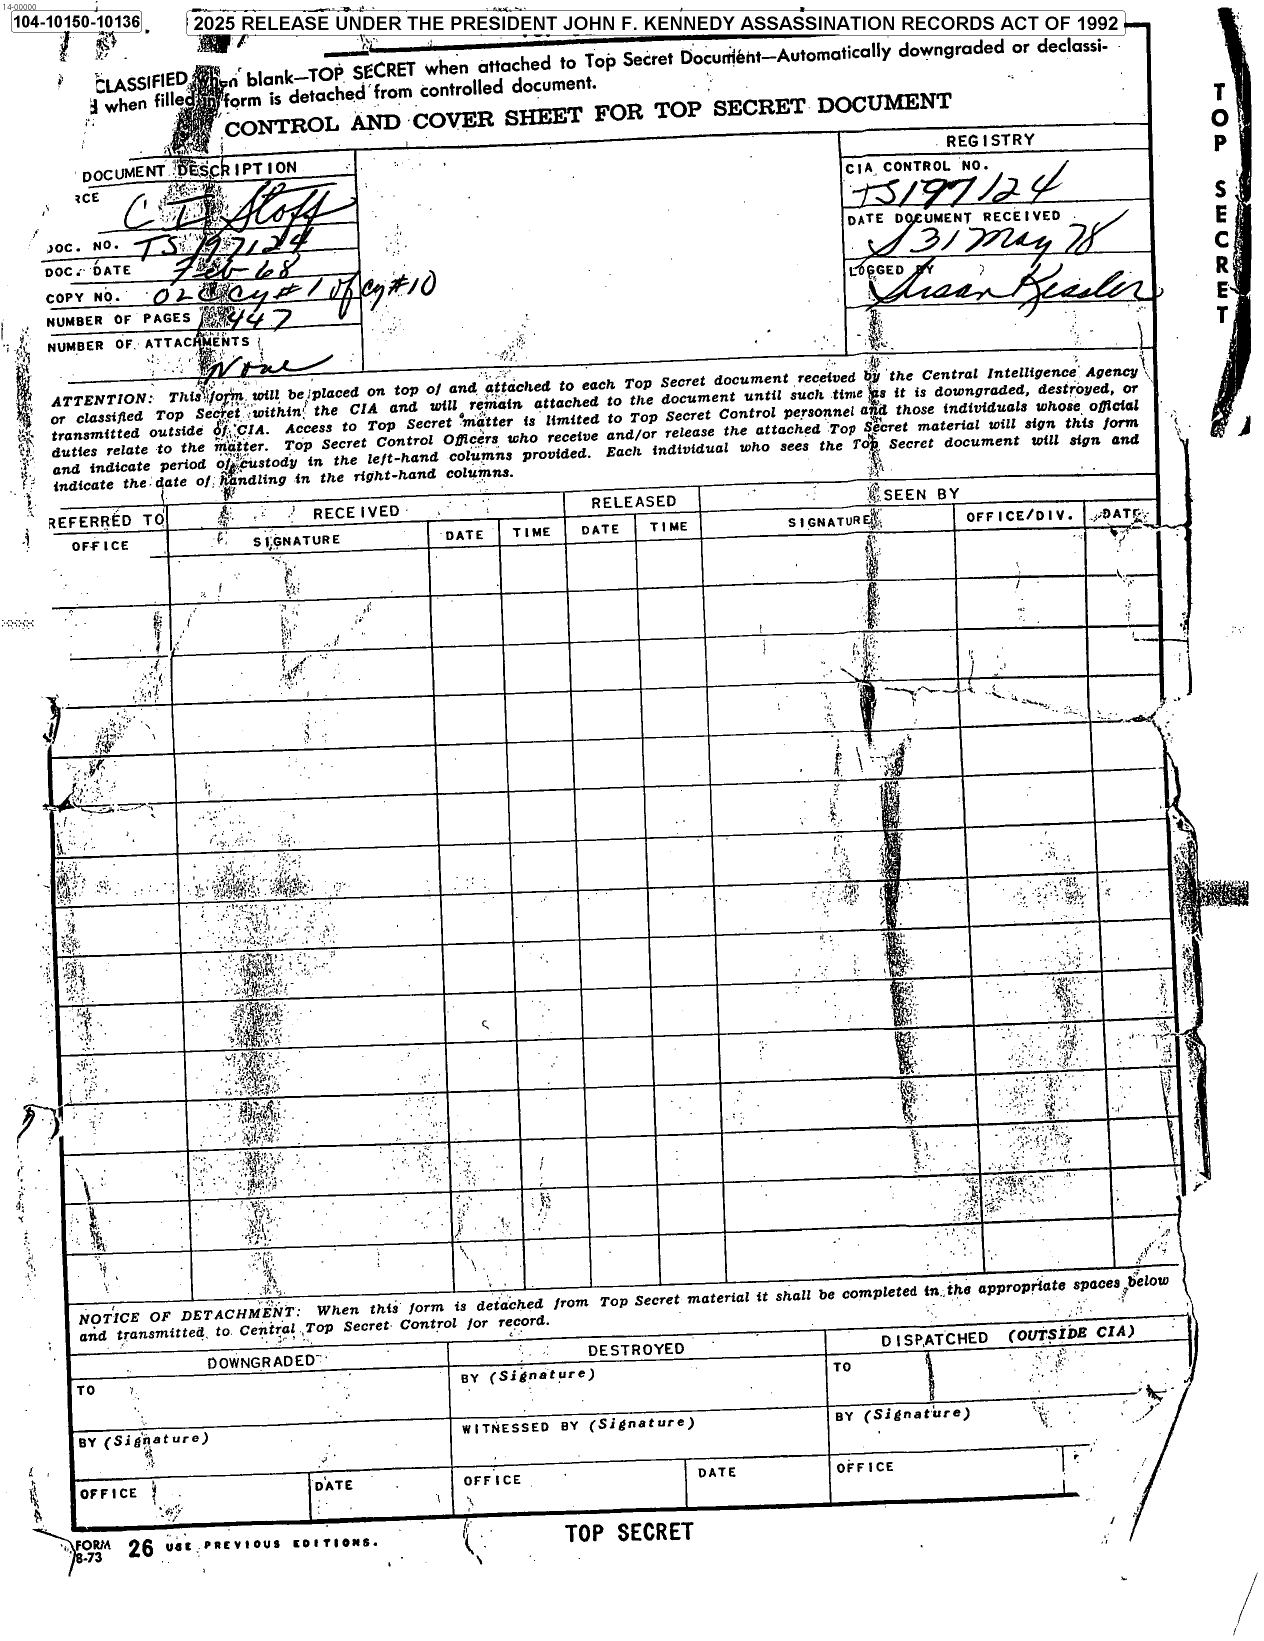 14-00000
104-10150-10136
2025 RELEASE UNDER THE PRESIDENT JOHN F. KENNEDY ASSASSINATION RECORDS ACT OF 1992
CLASSIFIED when blank—TOP SECRET when attached to Top Secret Document—Automatically downgraded or declassi-
d when filled in form is detached from controlled document.
CONTROL AND COVER SHEET FOR TOP SECRET DOCUMENT
DOCUMENT DESCRIPTION
REGISTRY
RCE
CI Staff
CIA CONTROL NO.
TS197124
DOC. NO. TS 197124
DATE DOCUMENT RECEIVED
31 May 78
DOC. DATE Feb-68
COPY NO. Cy #1 of Cy #10
LOGGED BY
Susan Kessler
NUMBER OF PAGES 447
NUMBER OF ATTACHMENTS
None
TOP SECRET
ATTENTION: This form will be placed on top of and attached to each Top Secret document received by the Central Intelligence Agency
or classified Top Secret within the CIA and will remain attached to the document until such time as it is downgraded, destroyed, or
transmitted outside of CIA. Access to Top Secret matter is limited to Top Secret Control personnel and those individuals whose official
duties relate to the matter. Top Secret Control Officers who receive and/or release the attached Top Secret material will sign this form
and indicate period of custody in the left-hand columns provided. Each individual who sees the Top Secret document will sign and
indicate the date of handling in the right-hand columns.
REFERRED TO RECEIVED RELEASED SEEN BY
OFFICE SIGNATURE DATE TIME DATE TIME SIGNATURE OFFICE/DIV. DATE
NOTICE OF DETACHMENT: When this form is detached from Top Secret material it shall be completed in the appropriate spaces below
and transmitted to Central Top Secret Control for record.
DOWNGRADED DESTROYED DISPATCHED (OUTSIDE CIA)
TO BY (Signature) TO
BY (Signature) WITNESSED BY (Signature) BY (Signature)
OFFICE DATE OFFICE DATE OFFICE
FORM
8-73 26 USE PREVIOUS EDITIONS.
TOP SECRET